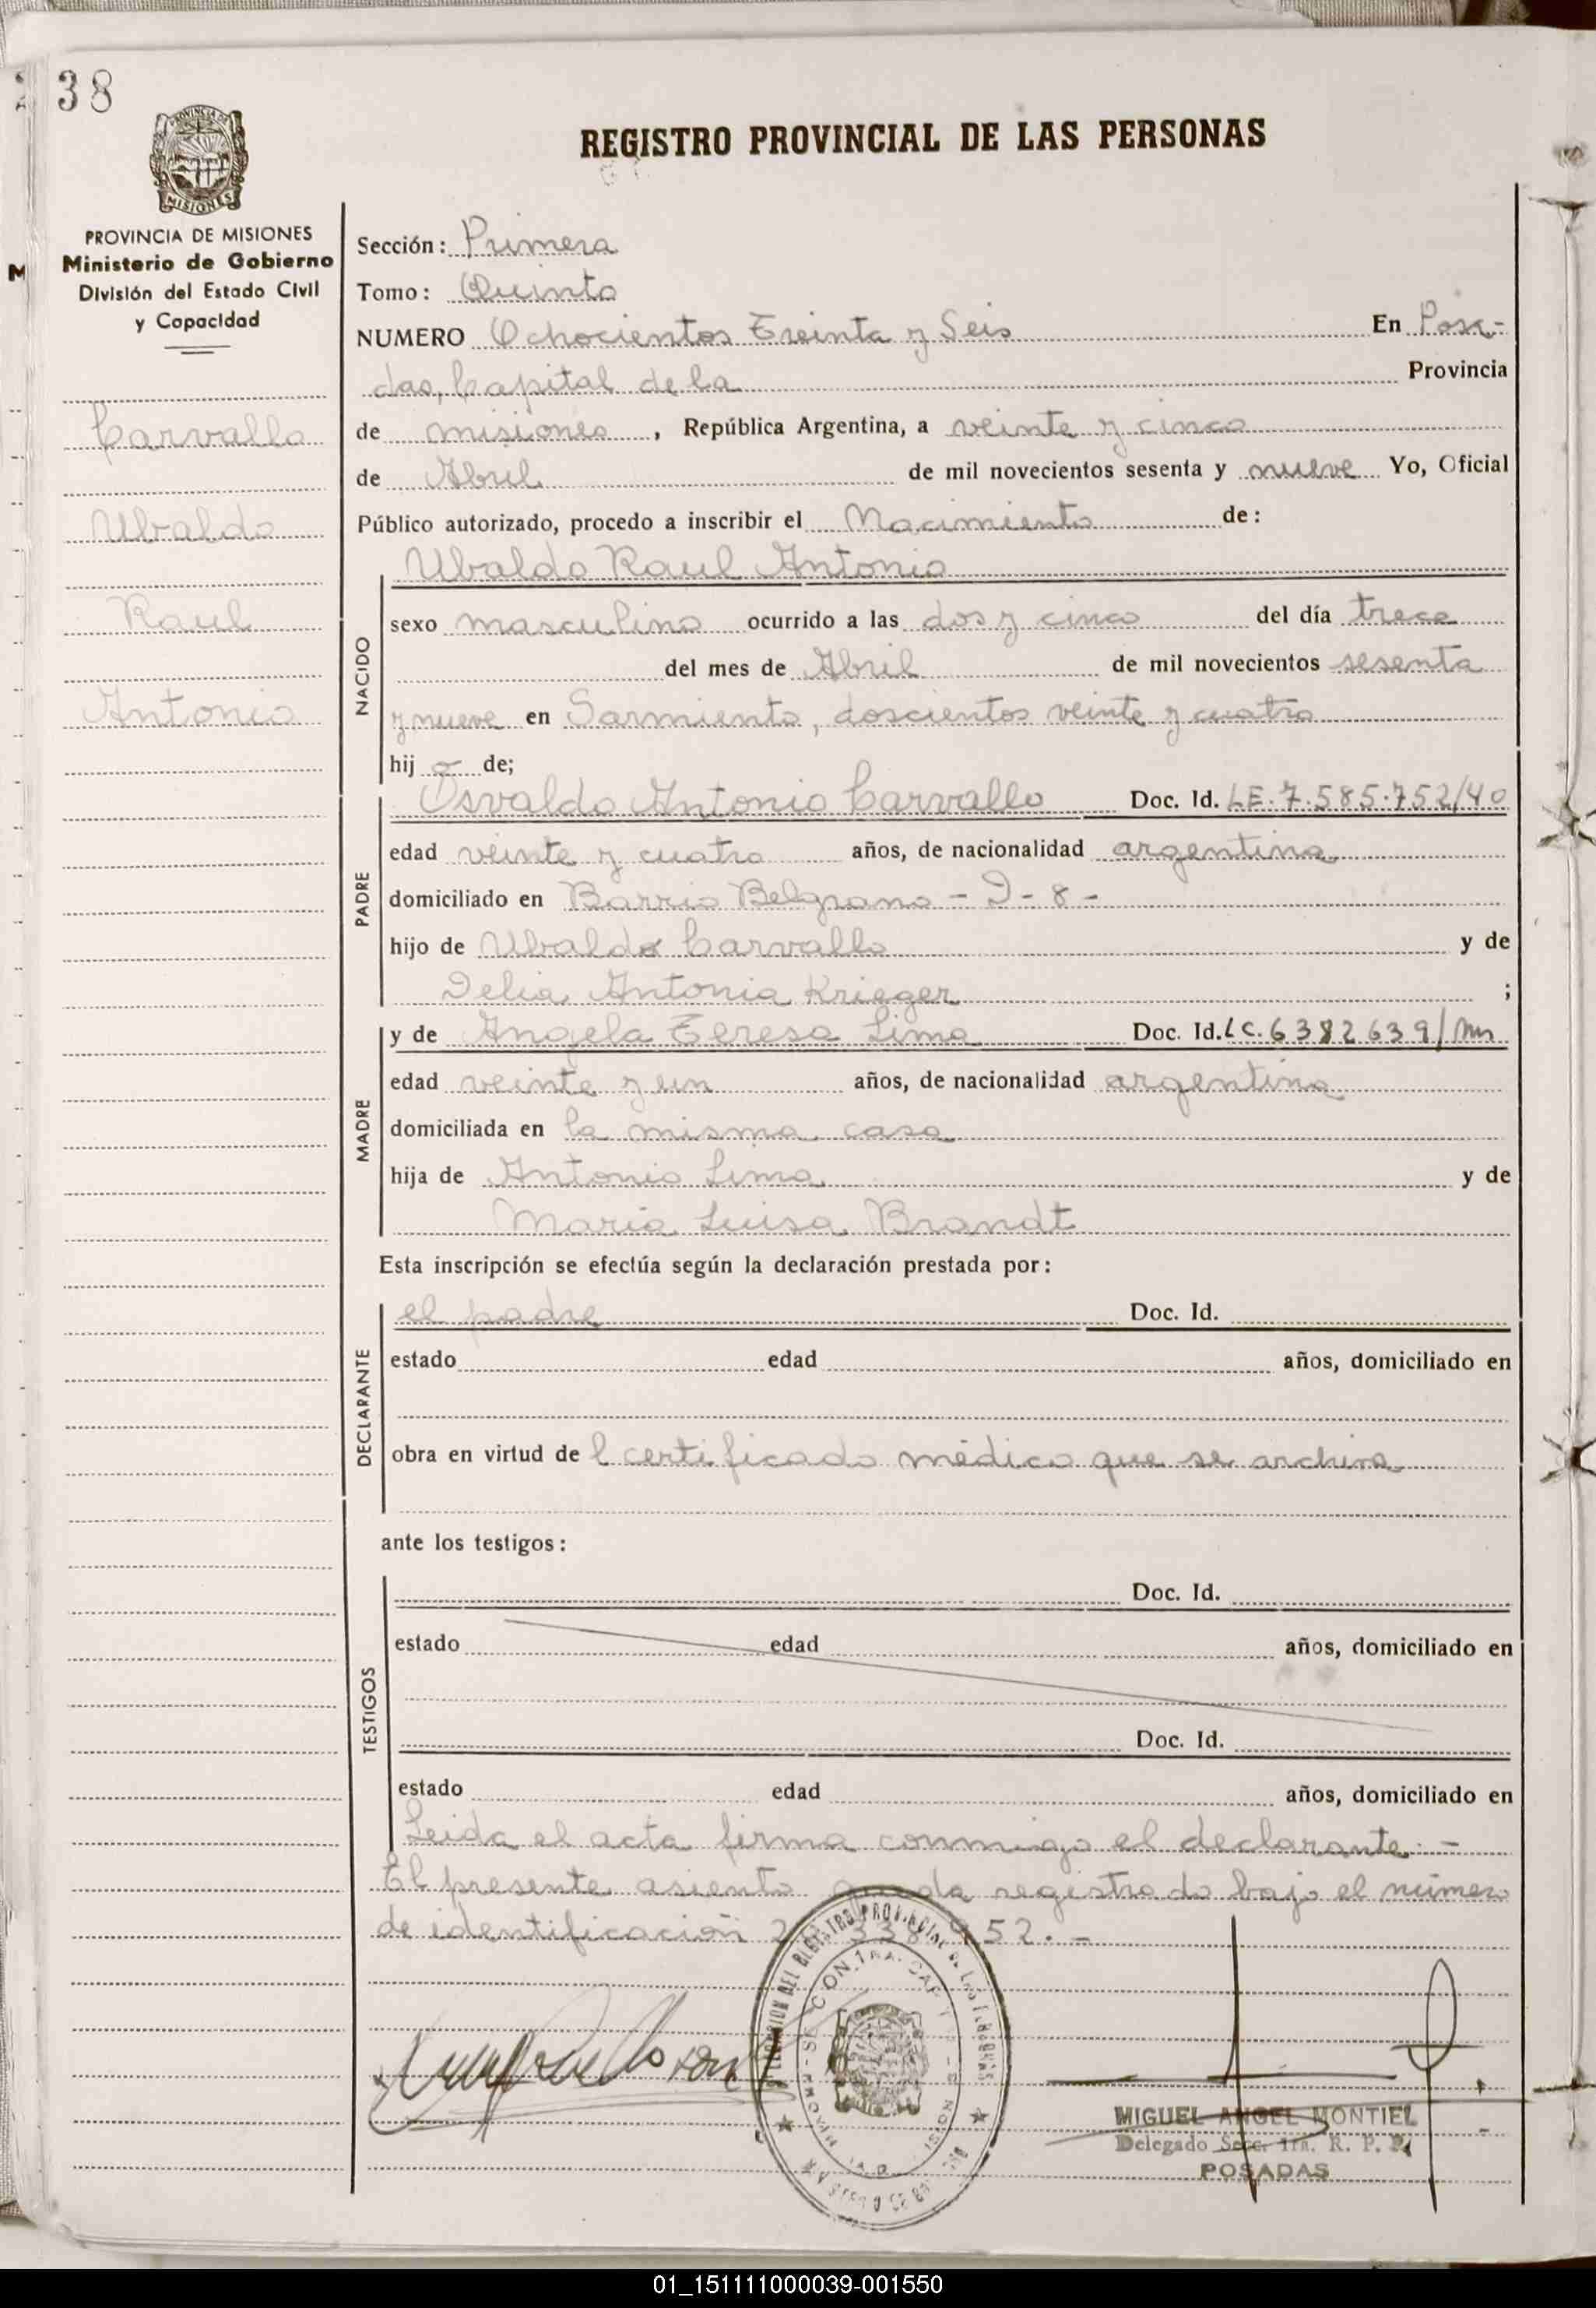 38
REGISTRO PROVINCIAL DE LAS PERSONAS
PROVINCIA DE
MISIONES
PROVINCIA DE MISIONES
Ministerio de Gobierno
División del Estado Civil
y Capacidad
Carvallo
Ubaldo
Raul
Antonio
Sección: Primera
Tomo: Quinto
NUMERO Ochocientos Treinta y Seis En Posa-
das, Capital de la Provincia
de misiones, República Argentina, a veinte y cinco
de Abril de mil novecientos sesenta y nueve Yo, Oficial
Público autorizado, procedo a inscribir el Nacimiento de:
Ubaldo Raul Antonio
NACIDO
sexo masculino ocurrido a las dos y cinco del día trece
del mes de Abril de mil novecientos sesenta
y nueve en Sarmiento, doscientos veinte y cuatro
hijo de;
PADRE
Osvaldo Antonio Carvallo Doc. Id. LE.7.585.752/40
edad veinte y cuatro años, de nacionalidad argentina
domiciliado en Barrio Belgrano - D - 8 -
hijo de Ubaldo Carvallo y de
Delia Antonia Krieger ;
MADRE
y de Angela Teresa Lima Doc. Id. LC. 6382639/Mns
edad veinte y un años, de nacionalidad argentina
domiciliada en la misma casa
hija de Antonio Lima y de
Maria Luisa Brandt
Esta inscripción se efectúa según la declaración prestada por:
DECLARANTE
el padre Doc. Id.
estado edad años, domiciliado en
obra en virtud de l certificado médico que se archiva
ante los testigos:
TESTIGOS
Doc. Id.
estado edad años, domiciliado en
Doc. Id.
estado edad años, domiciliado en
Leida el acta firma conmigo el declarante. -
El presente asiento queda registrado bajo el número
de identificación 952. -
MIGUEL ANGEL MONTIEL
Delegado Secc. 1ra. R. P. P.
POSADAS
01_151111000039-001550